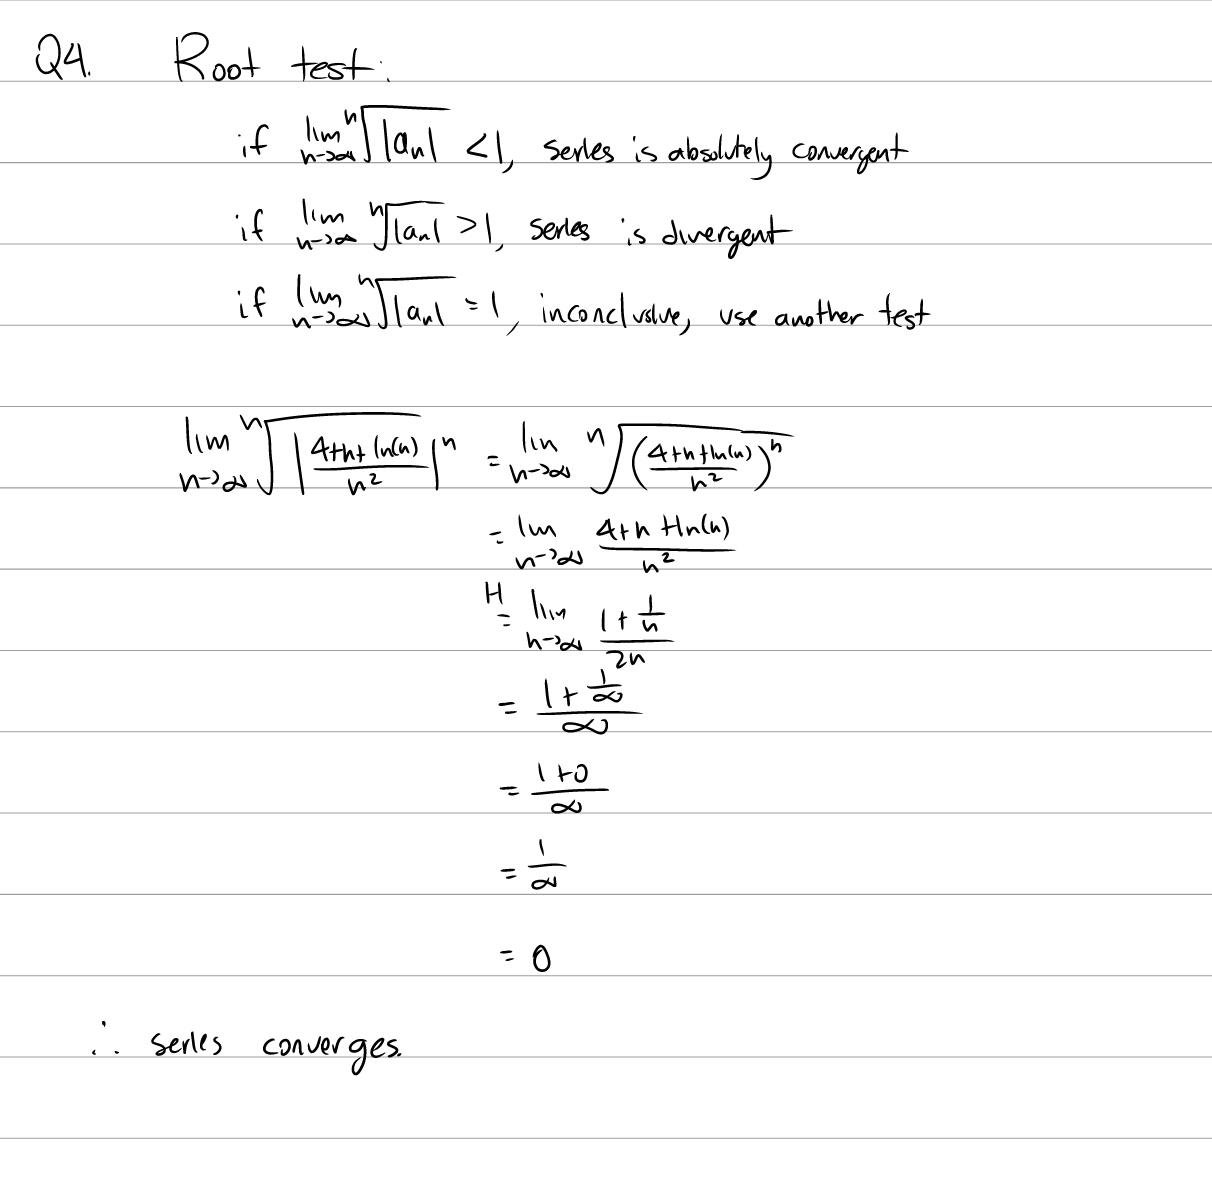 Q4. Root test:
if lim n→∞ ⁿ√|aₙ| < 1, series is absolutely convergent
if lim n→∞ ⁿ√|aₙ| > 1, series is divergent
if lim n→∞ ⁿ√|aₙ| = 1, inconclusive, use another test
lim n→∞ ⁿ√|(4+n+ln(n))/n²|ⁿ = lim n→∞ ⁿ√((4+n+ln(n))/n²)ⁿ
= lim n→∞ (4+n+ln(n))/n²
H= lim n→∞ (1+1/n)/2n
= (1+1/∞)/∞
= (1+0)/∞
= 1/∞
= 0
∴ series converges.